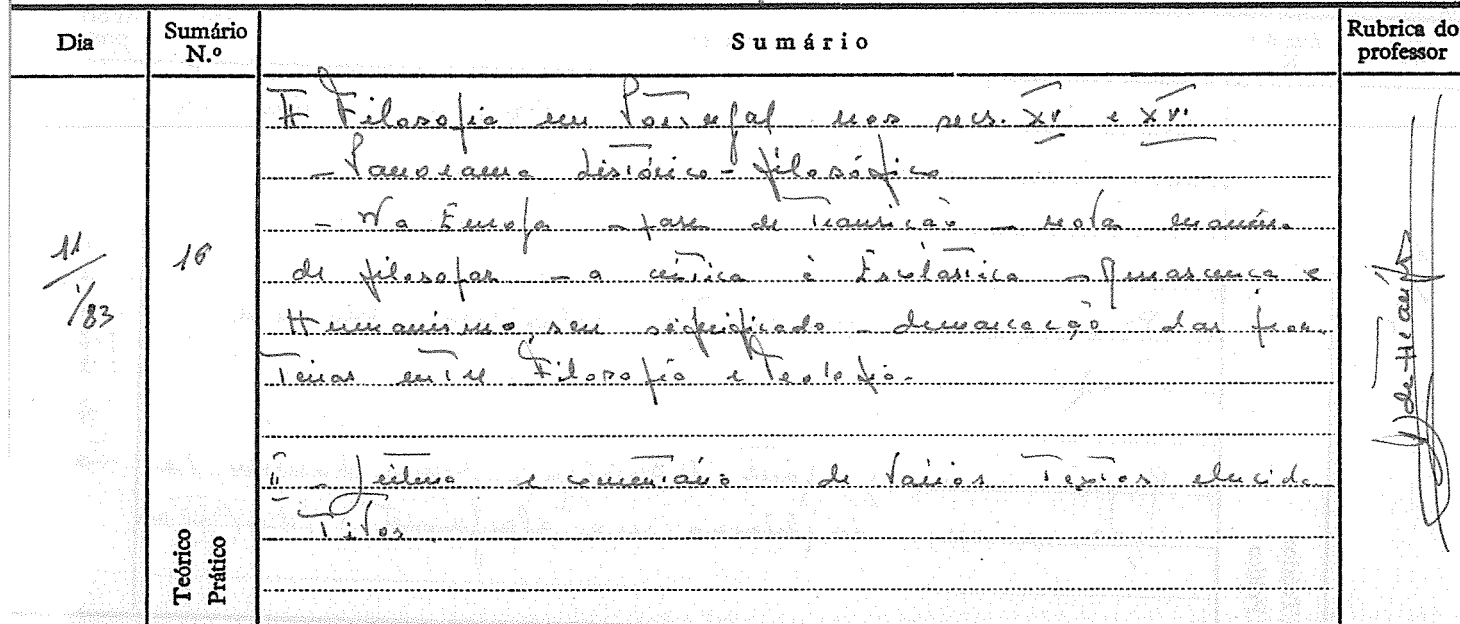 Dia
Sumário N.º
Sumário
Rubrica do professor
A Filosofia em Portugal nos sécs. XV e XVI
- Panorama histórico-filosófico
- Na Europa - fase de transição - nova maneira
11/1/83
16
de filosofar - a crítica à Escolástica - Renascença e
Humanismo seu significado - demarcação das fron-
teiras entre Filosofia e Teologia.
II - Leitura e comentário de vários textos elucida-
tivos.
Teórico
Prático